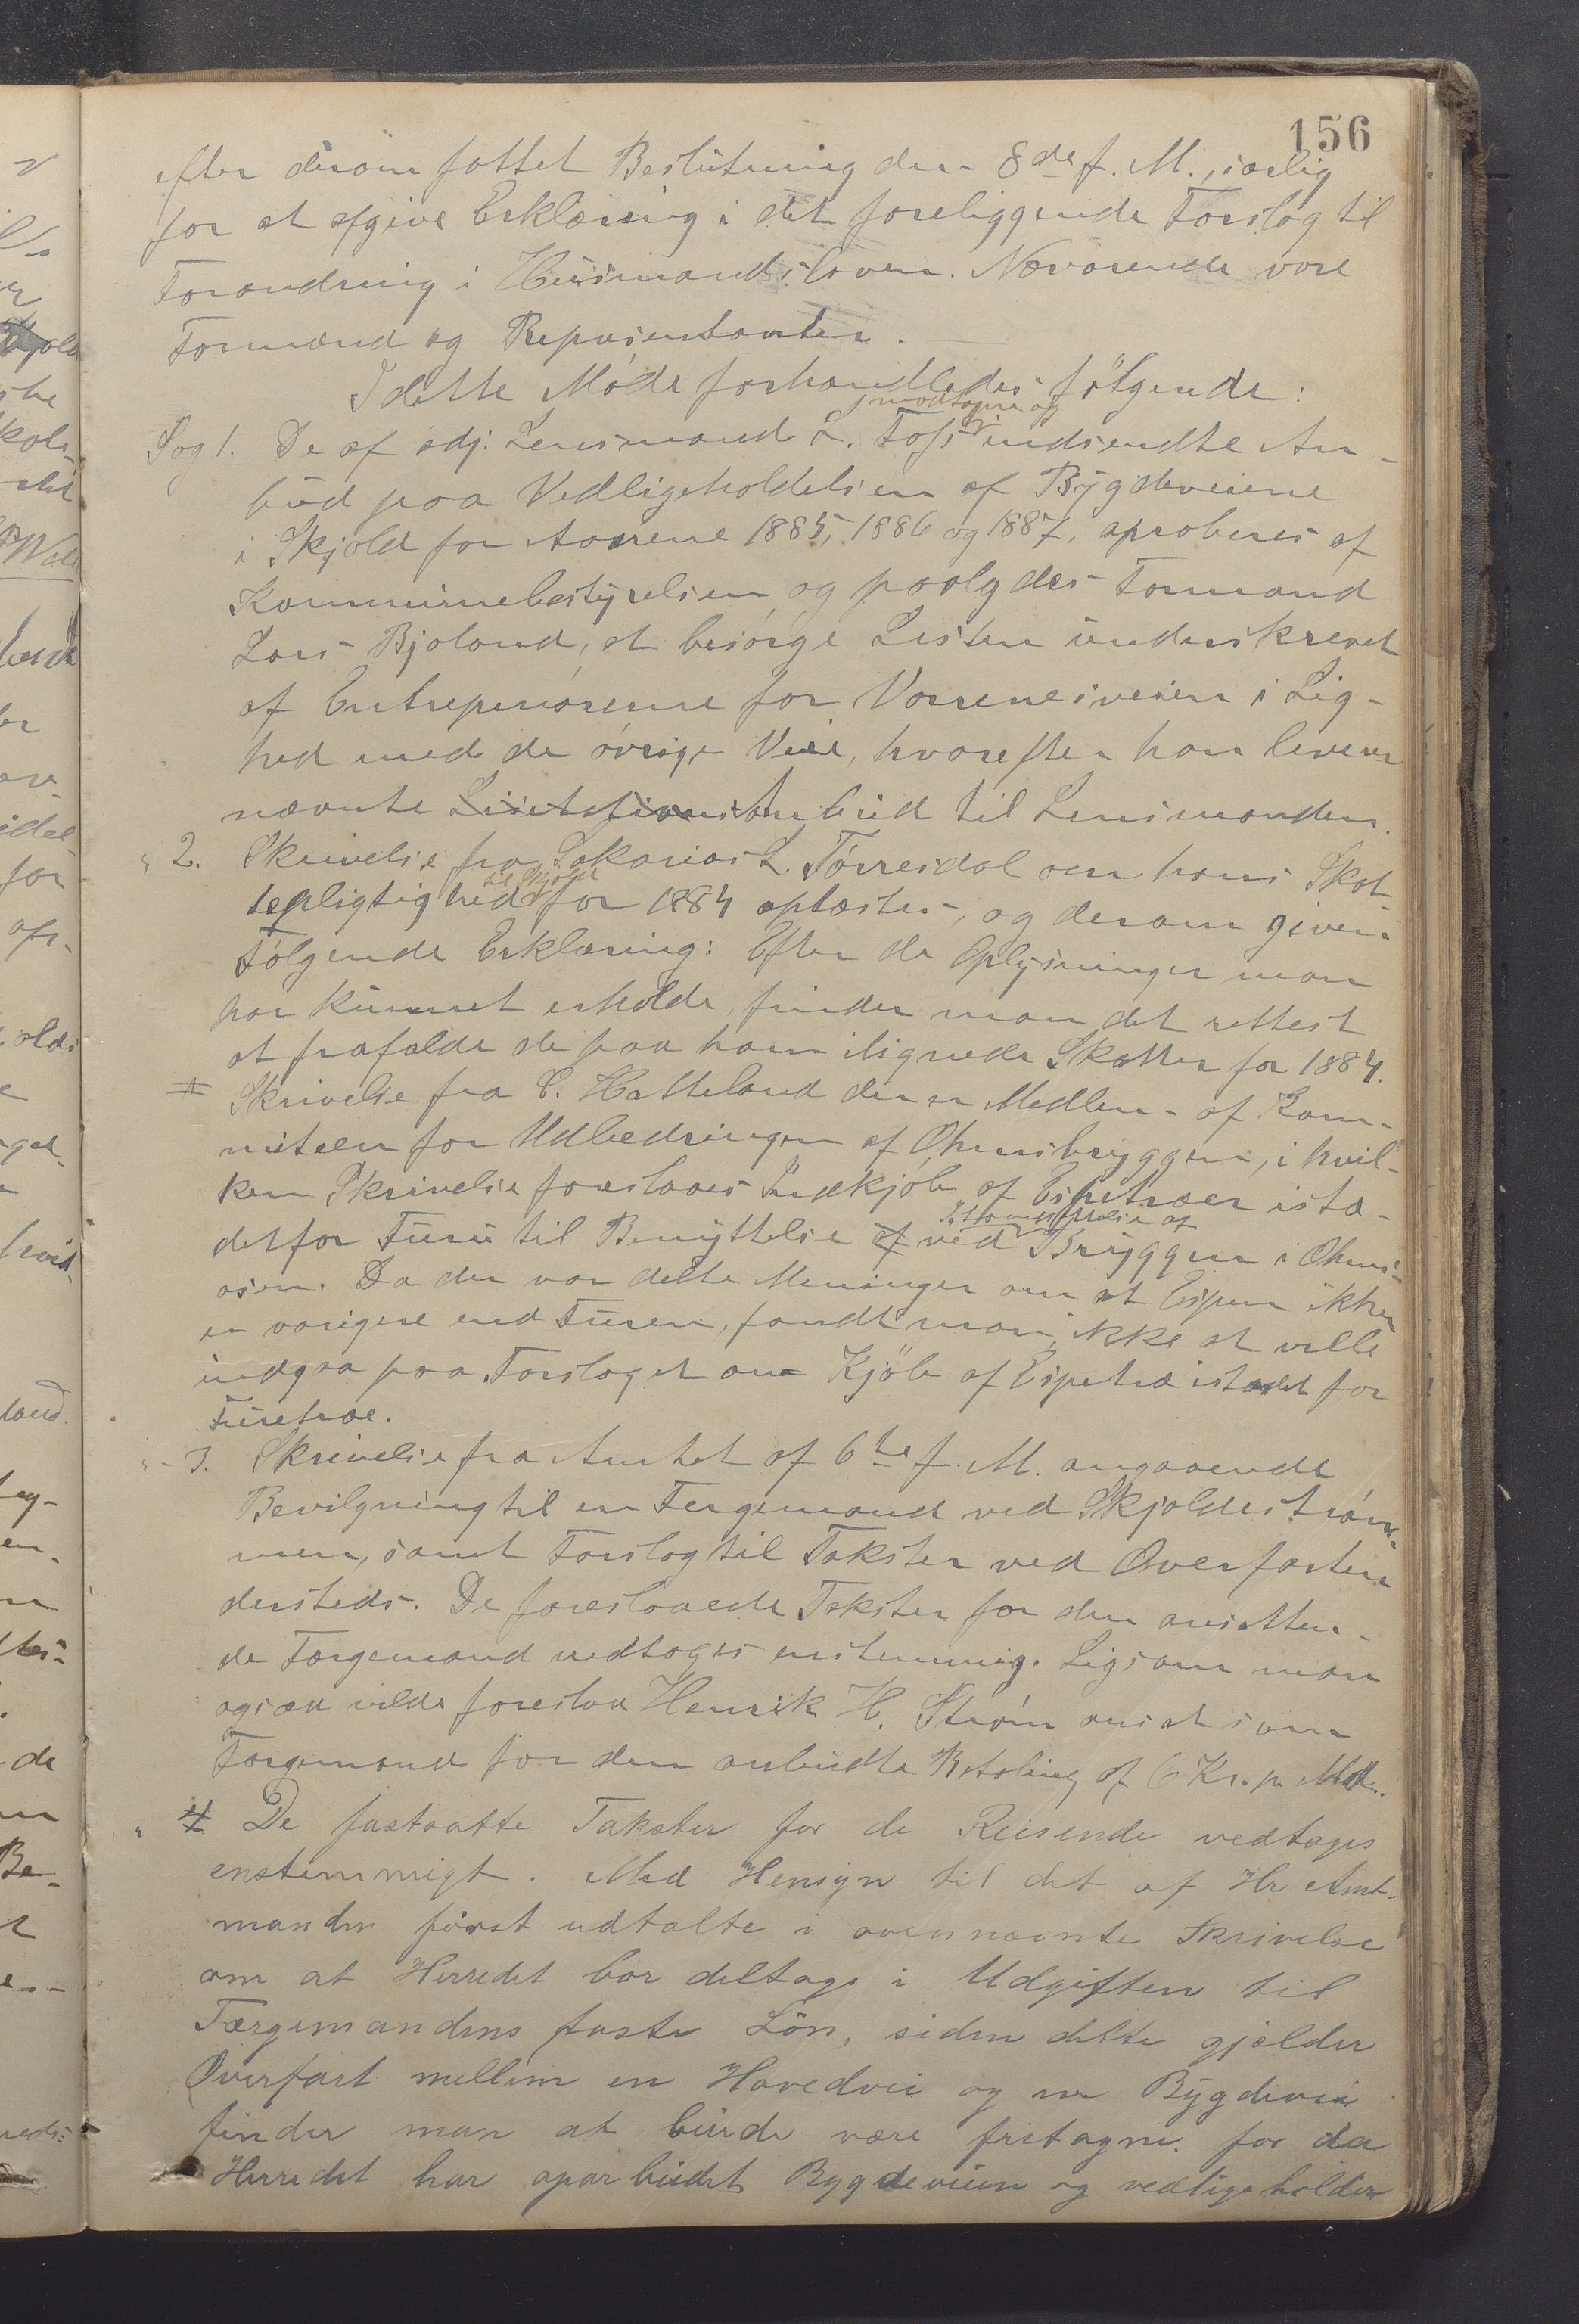 156
efter derom fattet Beslutning den 8de f. M., særlig
for at afgive Erklæring i det foreliggende Forslag til
Forandring i Husmandsloven. Nærværende vare
Formænd og Repræsentanter.
I dette Møde forhandledes følgende:
modtagne og
Sag 1. De af adj. Lensmand L. Foss indsendte An-
bud paa Vedligeholdelsen af Bygdeveiene
i Skjold for Aarene 1885, 1886 og 1887, aproberes af
Kommunebestyrelsen og paalagdes Formand
Lars Bjoland, at besørge Listen underskrevet
af Entrepenørerne for Vorrenesveien i Lig-
hed med de øvrige Veie, hvorefter han leverer
nævnte Anbud til Lensmanden.
" 2. Skrivelse fra Sakarias L. Tørresdal om hans Skat-
til Skjold
tepligtighed for 1884 oplæstes, og derom given
Følgende Erklæring: Efter de Oplysninger man
har kunnet erholde, finder man det rettest
at frafalde de paa ham ilignede Skatter for 1884.
Skrivelse fra C. Hatteland der er Medlem af Kom-
miteen for Udbedringen af Ølensbryggen, i hvil-
ken Skrivelse foreslaaes Indkjøb af Espetræer istæ-
Istandsættelse af
det for Furu til Benyttelse ved Bryggen i Ølens-
osen. Da der var delte Meninger om at Espen ikke
er varigere end Furen, fandt man ikke at ville
indgaa paa Forslaget om Kjøb af Espetræ istædet for
Furetræe.
" 3. Skrivelse fra Amtet af 6te f. M. angaaende
Bevilgning til en Færgemand ved Skjoldestrøm-
men, samt Forslag til Takster ved Overfarten
dersteds. De foreslaaede Takster for den ansatten-
de Færgemand vedtages enstemmig. Ligsom man
ogsaa vilde foreslaa Henrik H. Strøm ansat som
Færgemand for den anbudte Betaling af 6 Kr. pr Md.
" 4 De fastsatte Takster for de Reisende vedtages
enstemmigt. Med Hensyn til det af Hr Amt-
manden først udtalte i ovennævnte Skrivelse
om at Herredet bør deltage i Udgiften til
Færgemandens faste Løn, siden dette gjælder
Overfart mellem en Hovedvei og en Bygdevei
finder man at burde være fritagne for da
Herredet har oparbeidet Bygdeveien og vedligeholder